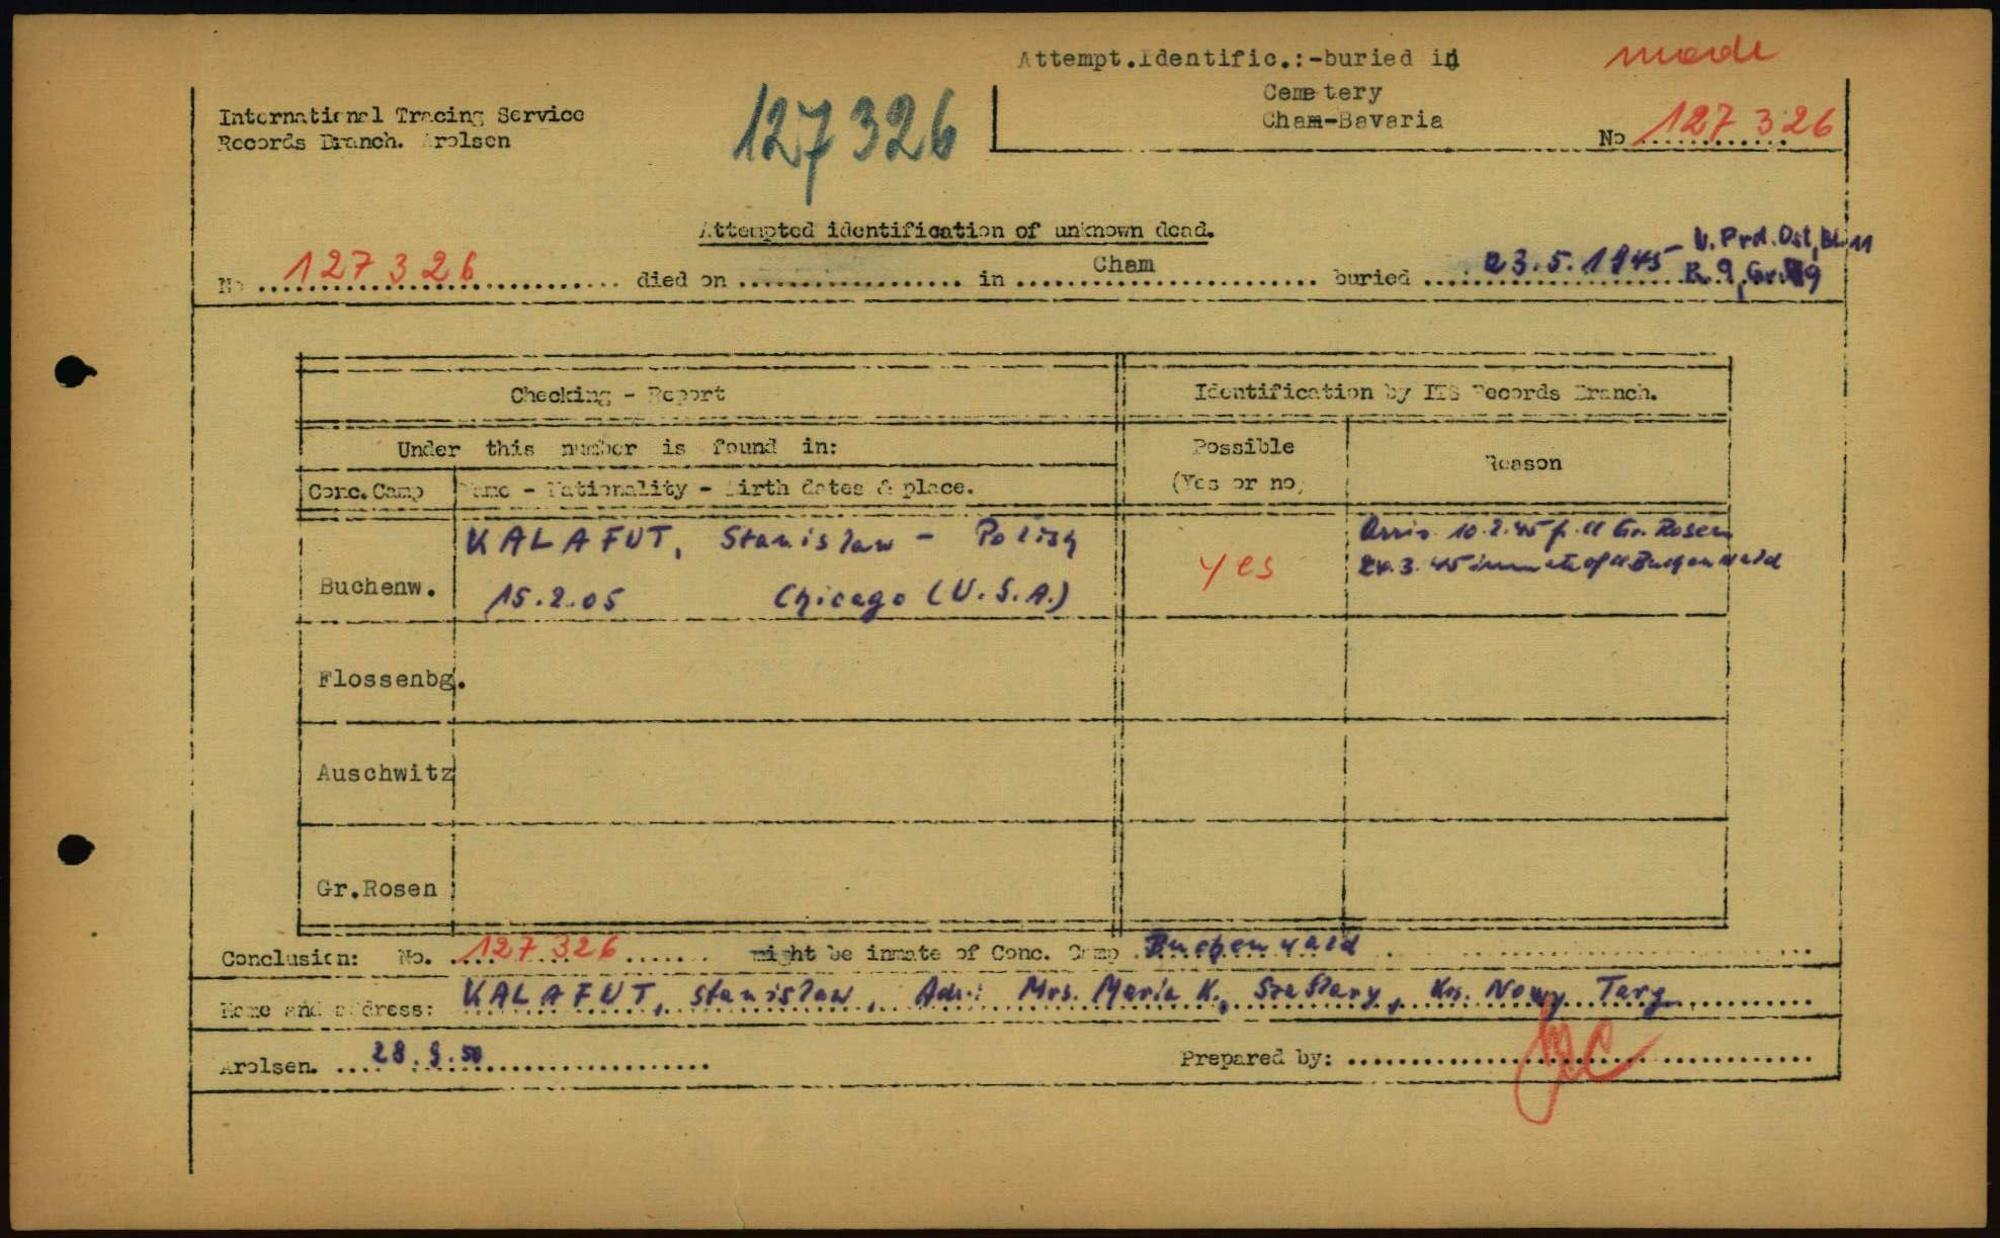 Attempt.Identific.:-buried in
made
Cemetery
Cham-Bavaria
International Tracing Service
Records Branch. Arolsen
127326
No 127326
Attempted identification of unknown dead.
No 127326 died on in Cham buried 23.5.1945 - V. Prd. Ost, Bl. 11
R. 9, Gr. 9
Checking - Report
Identification by ITS Records Branch.
Under this number is found in:
Possible
(Yes or no)
Reason
Conc. Camp
Name - Nationality - Birth dates & place.
Buchenw.
KALAFUT, Stanislaw - Polish
15.2.05 Chicago (U.S.A.)
yes
Arriv. 10.2.45 f. cc Gr. Rosen
24.3.45 inmate of cc Buchenwald
Flossenbg.
Auschwitz
Gr.Rosen
Conclusion: No. 127326 might be inmate of Conc. Camp Buchenwald
Name and address: KALAFUT, Stanislaw, Adr.: Mrs. Maria K., Krs. Nowy Targ
Arolsen. 28.9.50
Prepared by: